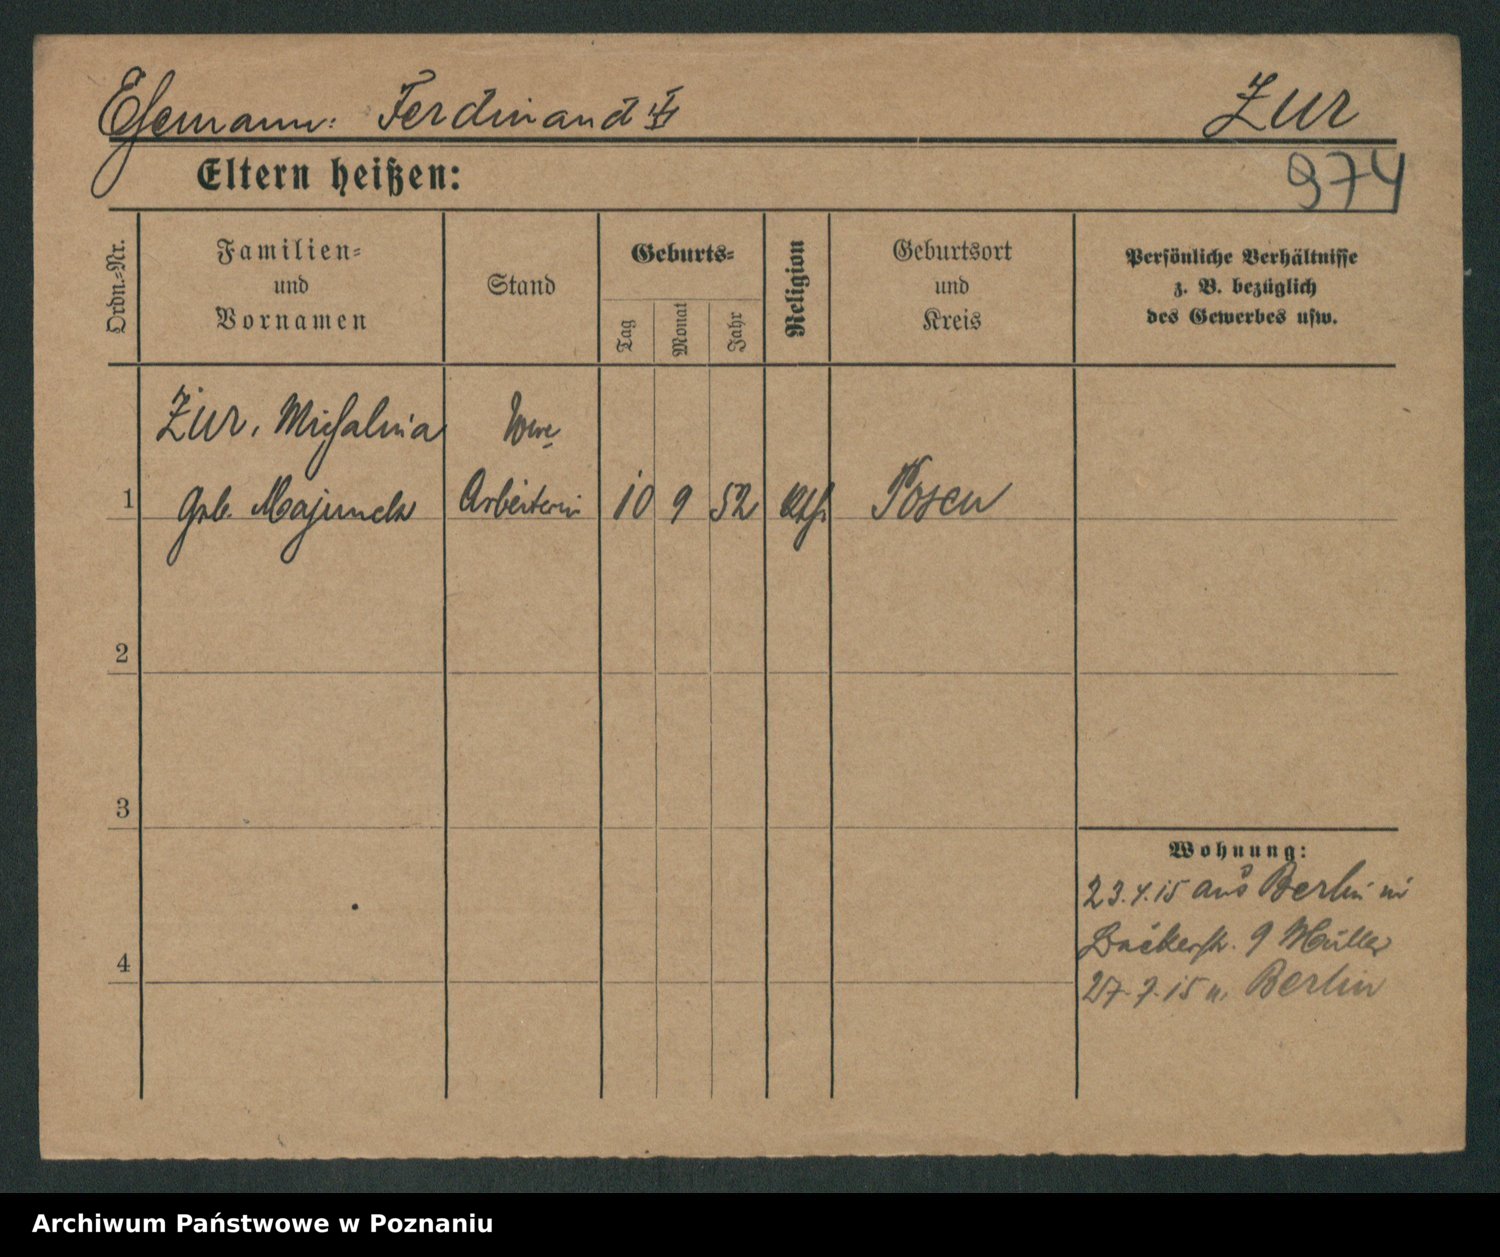 Ehemann: Ferdinand Żur
974
Eltern heißen:
Ordn.-Nr.
Familien-
und
Vornamen
Stand
Geburts-
Tag
Monat
Jahr
Religion
Geburtsort
und
Kreis
Persönliche Verhältnisse
z. B. bezüglich
des Gewerbes usw.
Żur, Michalina Wwe
1 geb. Majunek Arbeiterin 10 9 52 kth. Posen
2
3
4
Wohnung:
23.4.15 aus Berlin in
Bäckerstr. 9 Müller
27.7.15 n. Berlin
Archiwum Państwowe w Poznaniu